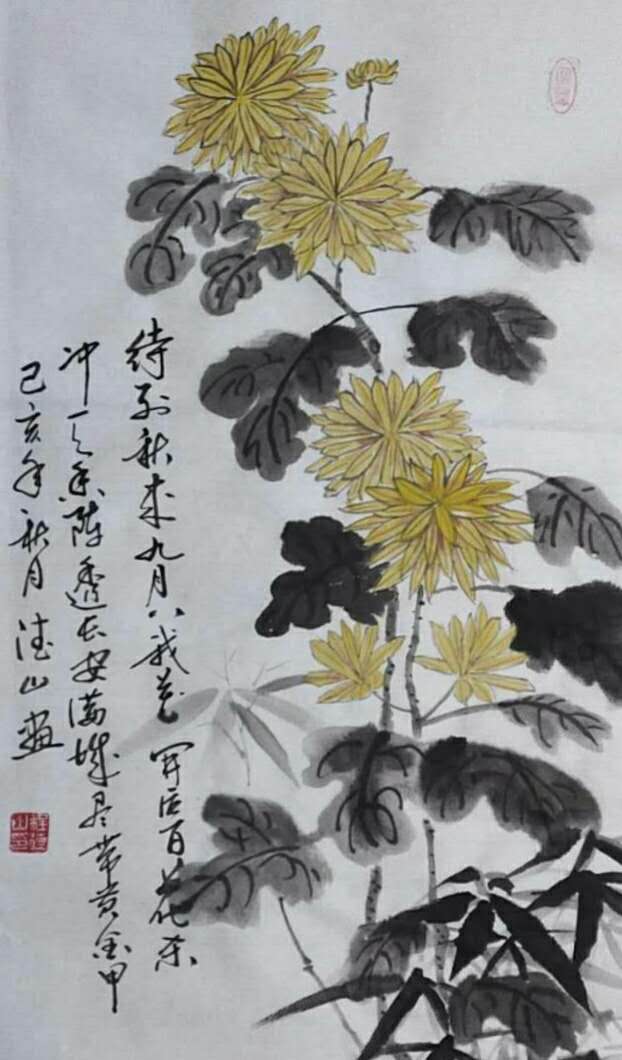 待到秋来九月八我花開后百花杀
冲天香陣透长安满城尽带黄金甲
己亥年秋月 德山畫